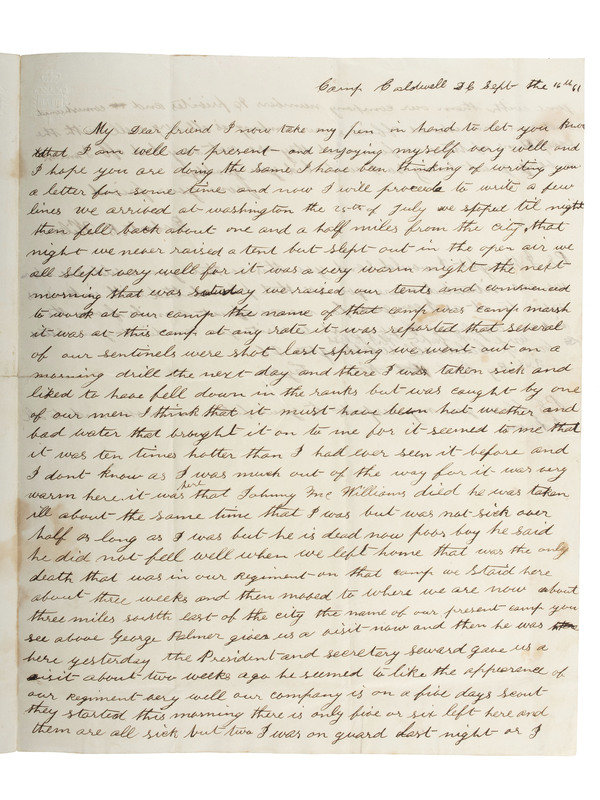 Camp Caldwell D C Sept the 16th 61
My Dear friend I now take my pen in hand to let you know
that I am well at present and enjoying myself very well and
I hope you are doing the same I have ben thinking of writing you
a letter for some time and now I will procede to write a few
lines we arrived at washington the 25th of July we stoped til night
then fell back about one and a half miles from the city that
night we never raised a tent but slept out in the open air we
all slept very well for it was a very warm night the next
morning that was saturday we raised our tents and commenced
to work at our camp the name of that camp was camp marsh
it was at this camp at any rate it was reported that several
of our sentinels were shot last spring we went out on a
morning drill the next day and there I was taken sick and
liked to have fell down in the ranks but was caught by one
of our men I think that it must have been hot weather and
bad water that brought it on to me for it seemed to me that
it was ten times hotter than I had ever seen it before and
I dont know as I was much out of the way for it was very
warm here it was here that Johny Mc Williams died he was taken
ill about the same time that I was but was not sick over
half as long as I was but he is dead now poor boy he said
he did not fell well when we left home that was the only
death that was in our Regiment on that camp we staid here
about three weeks and then moved to where we are now about
three miles south east of the city the name of our present camp you
see above George Palmer gives us a visit now and then he was
here yesterday the President and secretary seward gave us a
visit about two weeks ago he seemed to like the apperence of
our regiment very well our company is on a five days scout
they started this morning there is only five or six left here and
them are all sick but two I was on guard last night or I